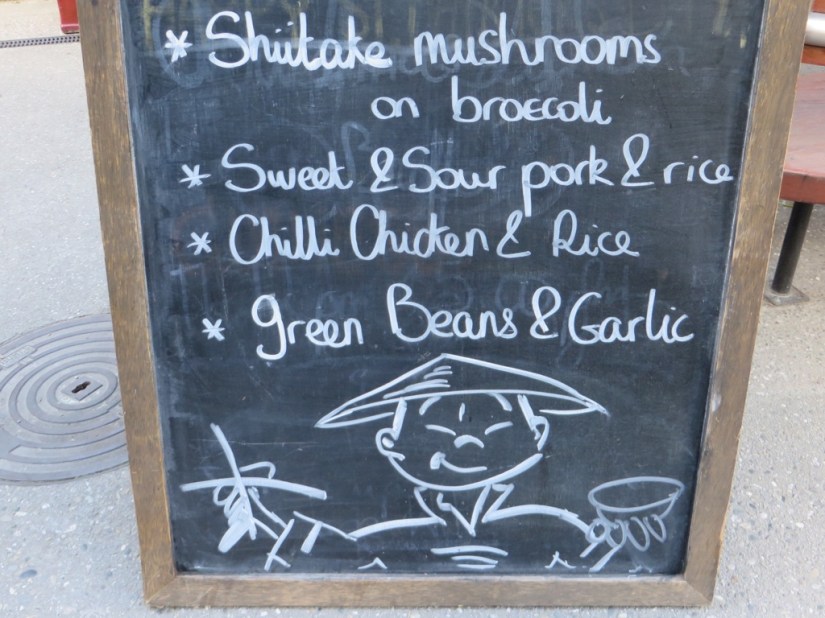 * Shiitake mushrooms
on broccoli
* Sweet & Sour pork & rice
* Chilli Chicken & Rice
* green Beans & Garlic